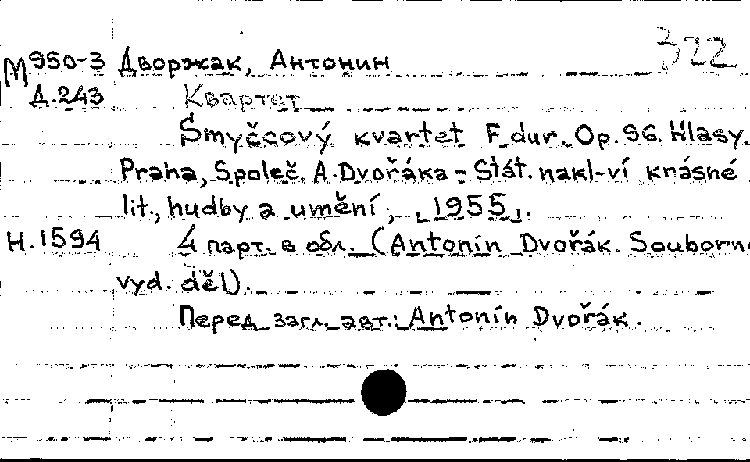 322
М950-3 Дворжак, Антонин
Д.243 Квартет
Smyčcový kvartet F dur. Op. 96. Hlasy.
Praha, Společ. A. Dvořáka - Stát. nakl-ví knásné
lit., hudby a umění, [1955].
Н.1594 4 парт. в обл. (Antonín Dvořák. Souborné
vyd. děl).
Перед загл. авт.: Antonín Dvořák.